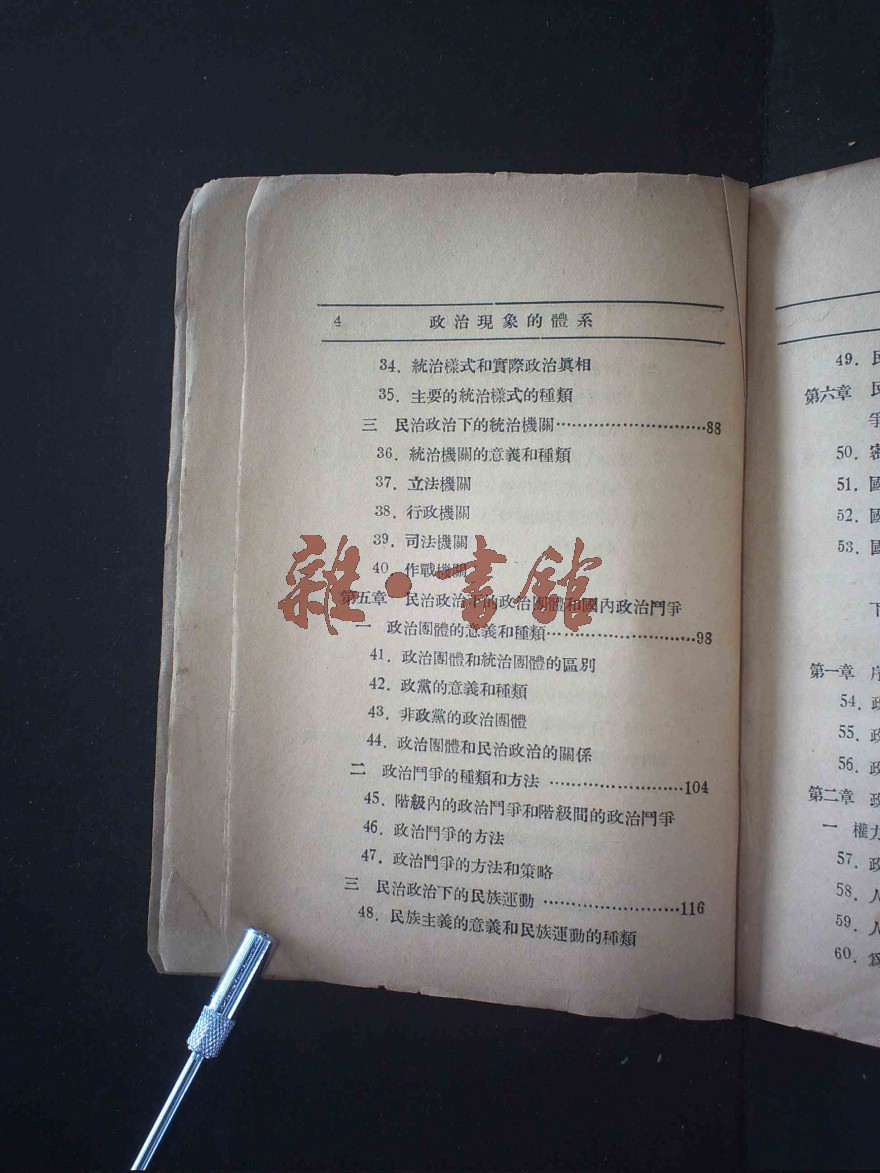 4 政治現象的體系
34．統治樣式和實際政治眞相
35．主要的統治樣式的種類
三 民治政治下的統治機關……………………88
36．統治機關的意義和種類
37．立法機關
38．行政機關
39．司法機關
40．作戰機關
第五章 民治政治下的政治團體和國內政治鬥爭
一 政治團體的意義和種類……………………98
41．政治團體和統治團體的區別
42．政黨的意義和種類
43．非政黨的政治團體
44．政治團體和民治政治的關係
二 政治鬥爭的種類和方法……………………104
45．階級內的政治鬥爭和階級間的政治鬥爭
46．政治鬥爭的方法
47．政治鬥爭的方法和策略
三 民治政治下的民族運動……………………116
48．民族主義的意義和民族運動的種類
49．
第六章
50．
51．
52．
53．
下
第一章 序
54．政
55．政
56．政
第二章 政
一 權力
57．政
58．人
59．人
60．爲
雜·書館